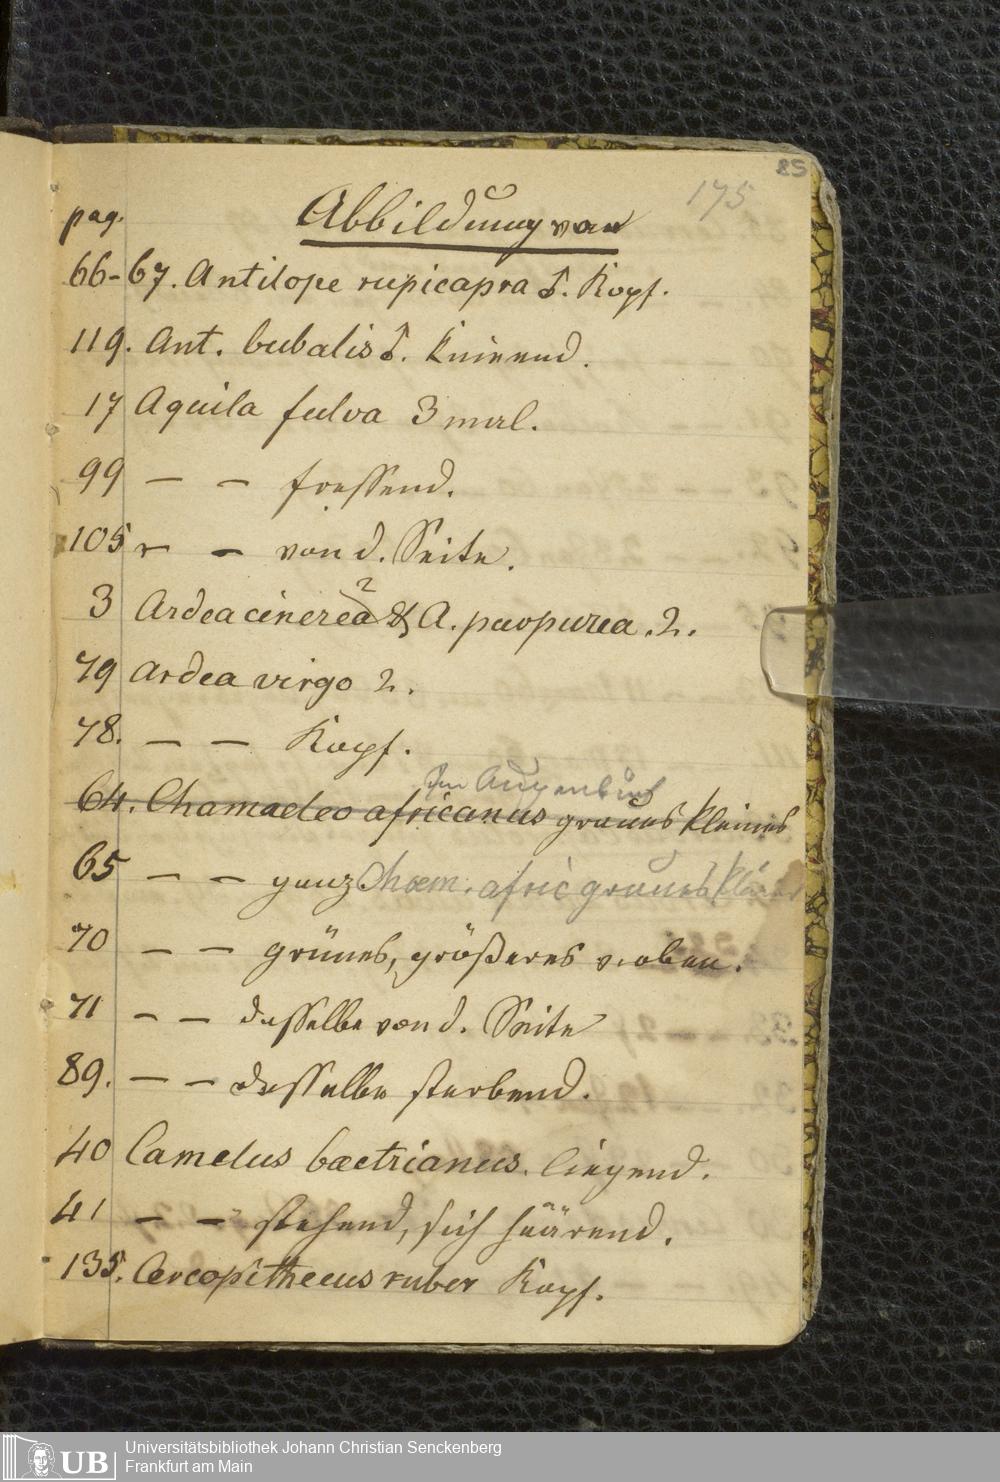 85
175
pag. Abbildung von
66-67. Antilope rupicapra ♂. Kopf.
119. Ant. bubalis ♂. knieend.
17 Aquila fulva 3 mal.
99 — — fressend.
105 — — von d. Seite.
3 Ardea cinerea 2 & A. purpurea. 2.
79 Ardea virgo 2.
78. — — Kopf.
Im Augenbuch
64. Chamaeleo africanus graues kleines
65 — — ganz Cham. afric graues kleines
70 — — grünes, größeres v. oben.
71 — — dasselbe von d. Seite
89. — — dasselbe sterbend.
40 Camelus bactrianus. liegend.
41 — — stehend, sich häärend.
135. Cercopithecus ruber Kopf.
UB Universitätsbibliothek Johann Christian Senckenberg
Frankfurt am Main